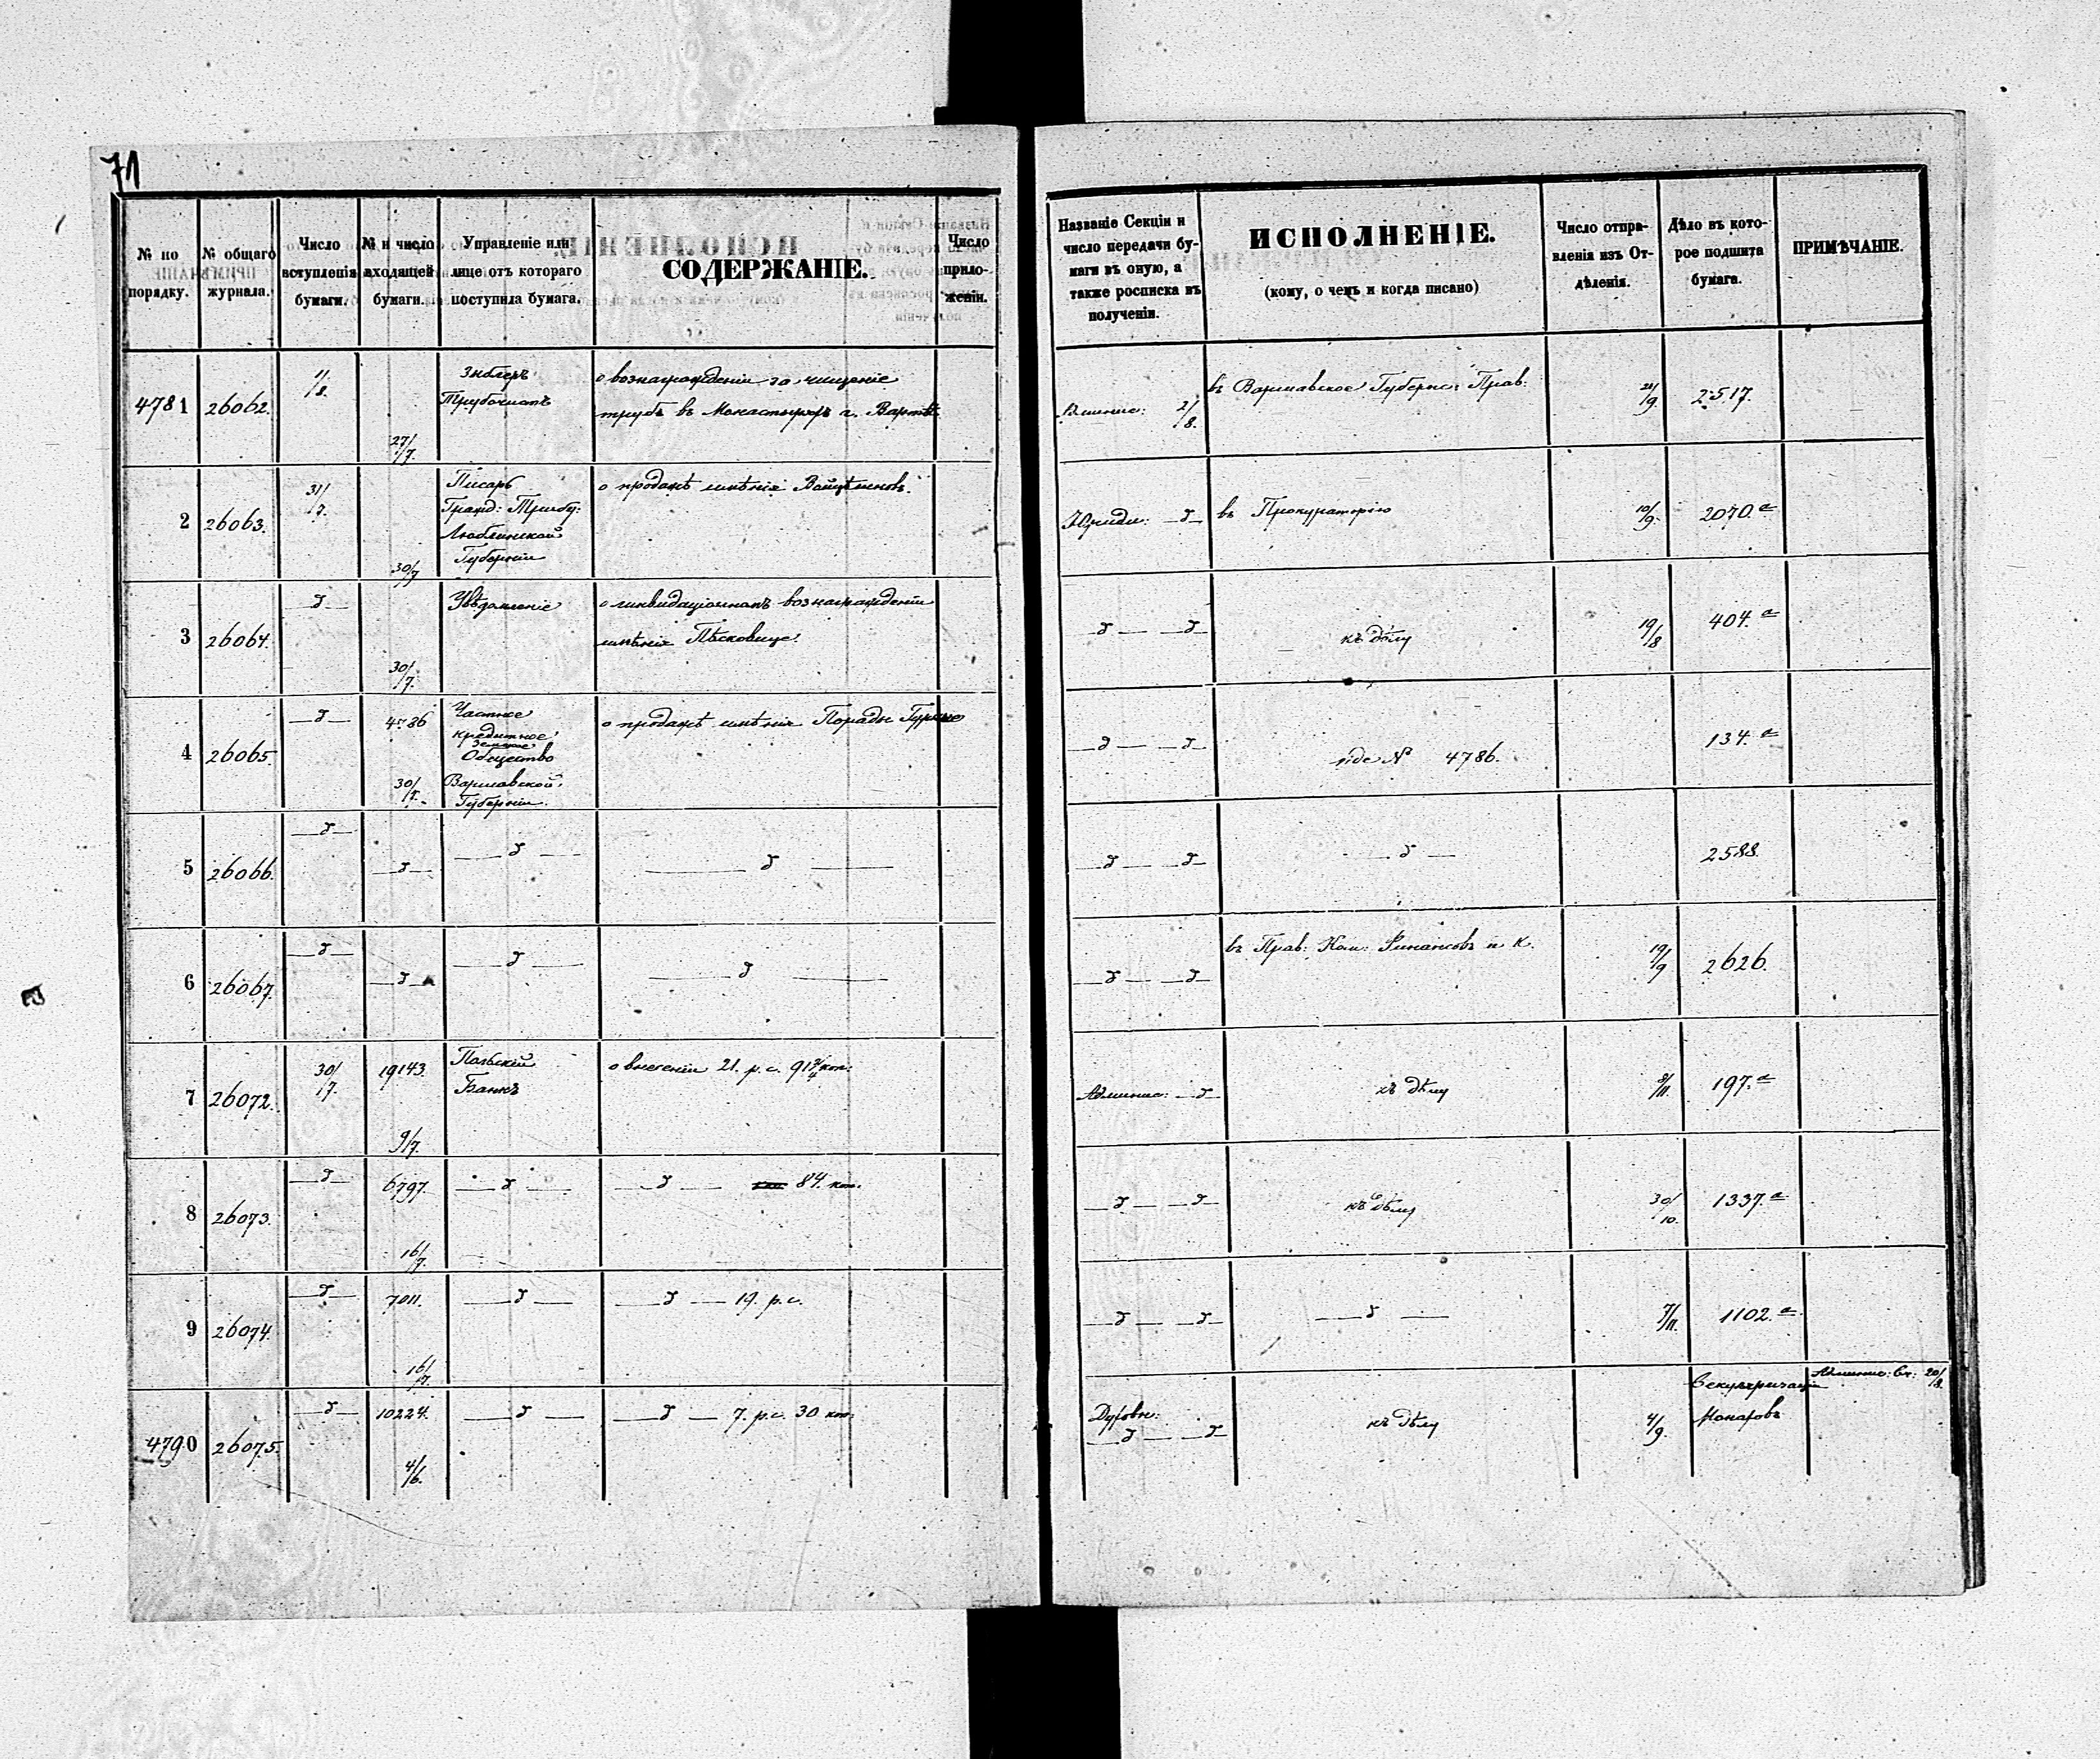 71
№ по порядку.
№ общаго журнала.
Число вступленія бумаги.
№ и число входящей бумаги.
Управленіе или лице отъ котораго поступила бумага.
СОДЕРЖАНІЕ.
Число приложеніи.
Названіе Секціи и число передачи бумаги въ оную, а также росписка въ полученіи.
ИСПОЛНЕНІЕ.
(кому, о чемъ и когда писано)
Число отправленія изъ Отдѣленія.
Дѣло въ которое подшита бумага.
ПРИМѢЧАНІЕ.
4781 26062. 1/8. 27/7.
Трубочистъ
о вознагражденіи за чищеніе
трубъ въ Монастырѣ г.
2/8. въ Варшавское Губернс: Прав: 2517.
2 26063. 31/7. 30/7
Писарь
Гражд: Трибу:
Люблинской
Губерніи
о продажѣ имѣнія
Юриди: —д— въ Прокураторію 10/9. 2070.а
3 26064. —д— 30/7.
Увѣдомленіе
о ликвидаціонномъ вознагражденіи
имѣнія
—д— —д— къ дѣлу 19/8 404.а
4 26065. —д— 4786 30/7.
Частное
кредитное
земское
Общество
Варшавской
Губерніи.
о продажѣ имѣнія
—д— —д— vide № 4786. 134.а
5 26066. —д— —д— —д— —д—
—д— —д— —д— 2588.
6 26067. —д— —д— —д— —д—
—д— —д— въ Прав: Ком: Финансовъ и К. 19/9 2626.
7 26072. 30/7. 19143. 9/7.
Польскій
Банкъ
о внесеніи 21. р. с. 91 3/4 коп:
Админис: —д— къ дѣлу 8/11. 197.а
8 26073. —д— 6797. 16/7. —д— —д— 84. коп.
—д— —д— къ дѣлу 30/10. 1337.а
9 26074. —д— 7011. 16/7. —д— —д— 19. р. с.
—д— —д— —д— 7/11. 1102.а
4790 26075. —д— 10224. 4/6. —д— —д— 7. р. с. 30 коп:
Духовн:
—д— —д— къ дѣлу 4/9.